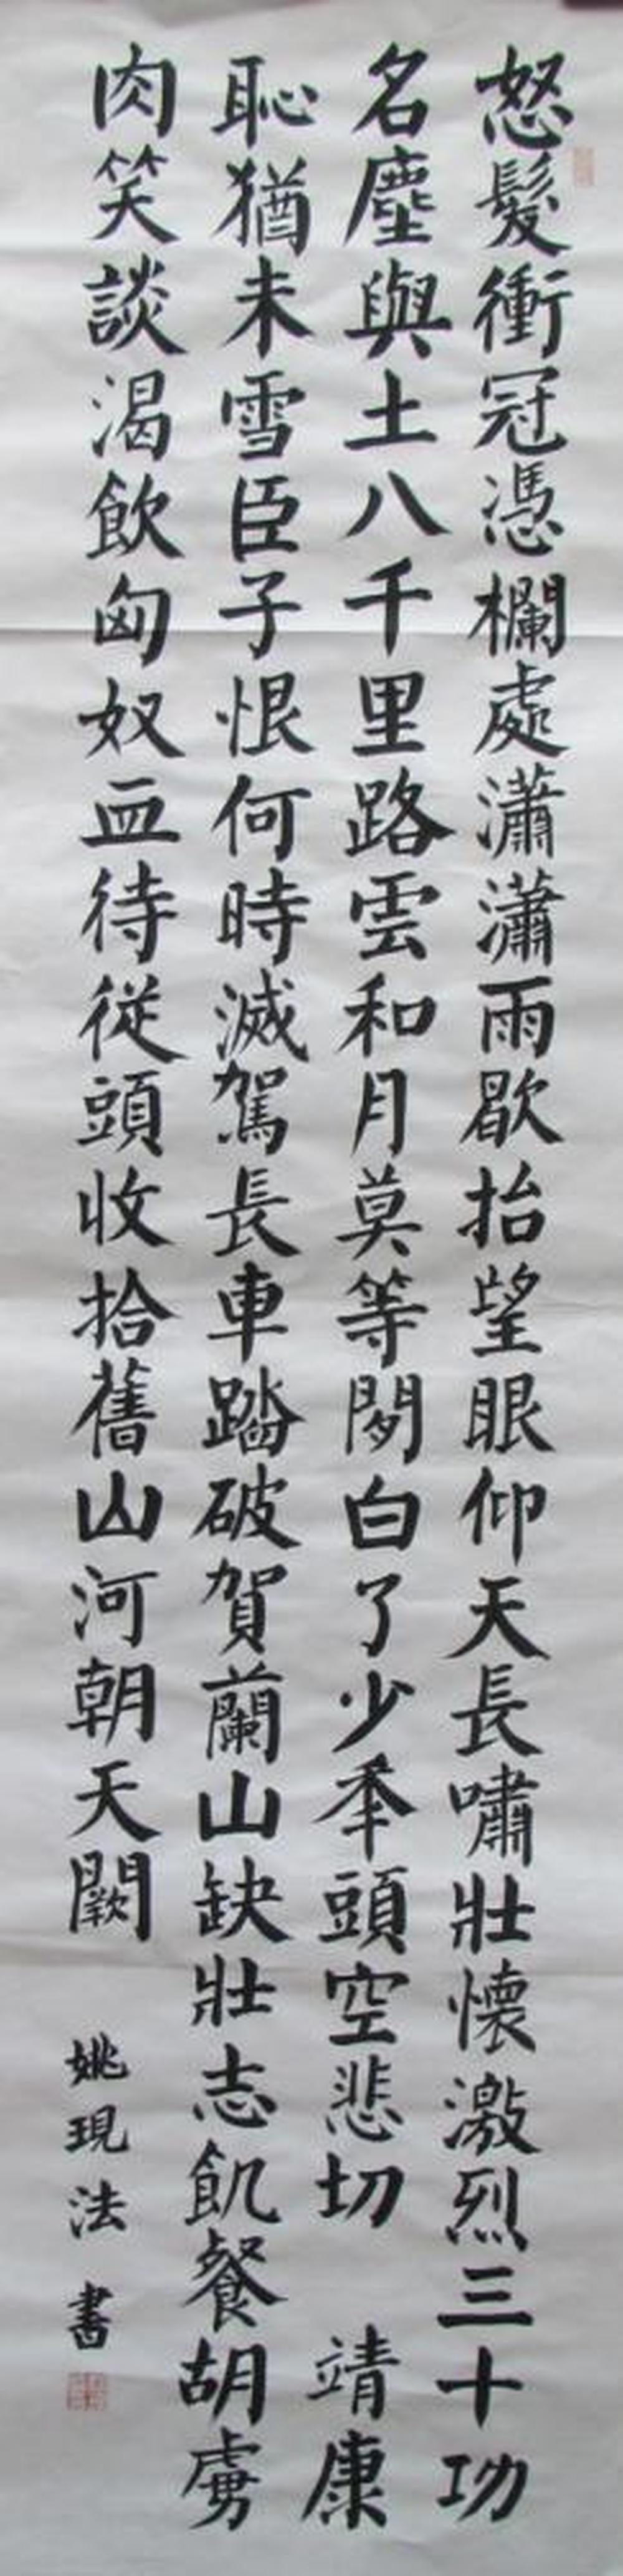 怒髮衝冠憑欄處瀟瀟雨歇抬望眼仰天長嘯壯懷激烈三十功
名塵與土八千里路雲和月莫等閒白了少年頭空悲切 靖康
恥猶未雪臣子恨何時滅駕長車踏破賀蘭山缺壯志飢餐胡虜
肉笑談渴飲匈奴血待從頭收拾舊山河朝天闕 姚現法 書